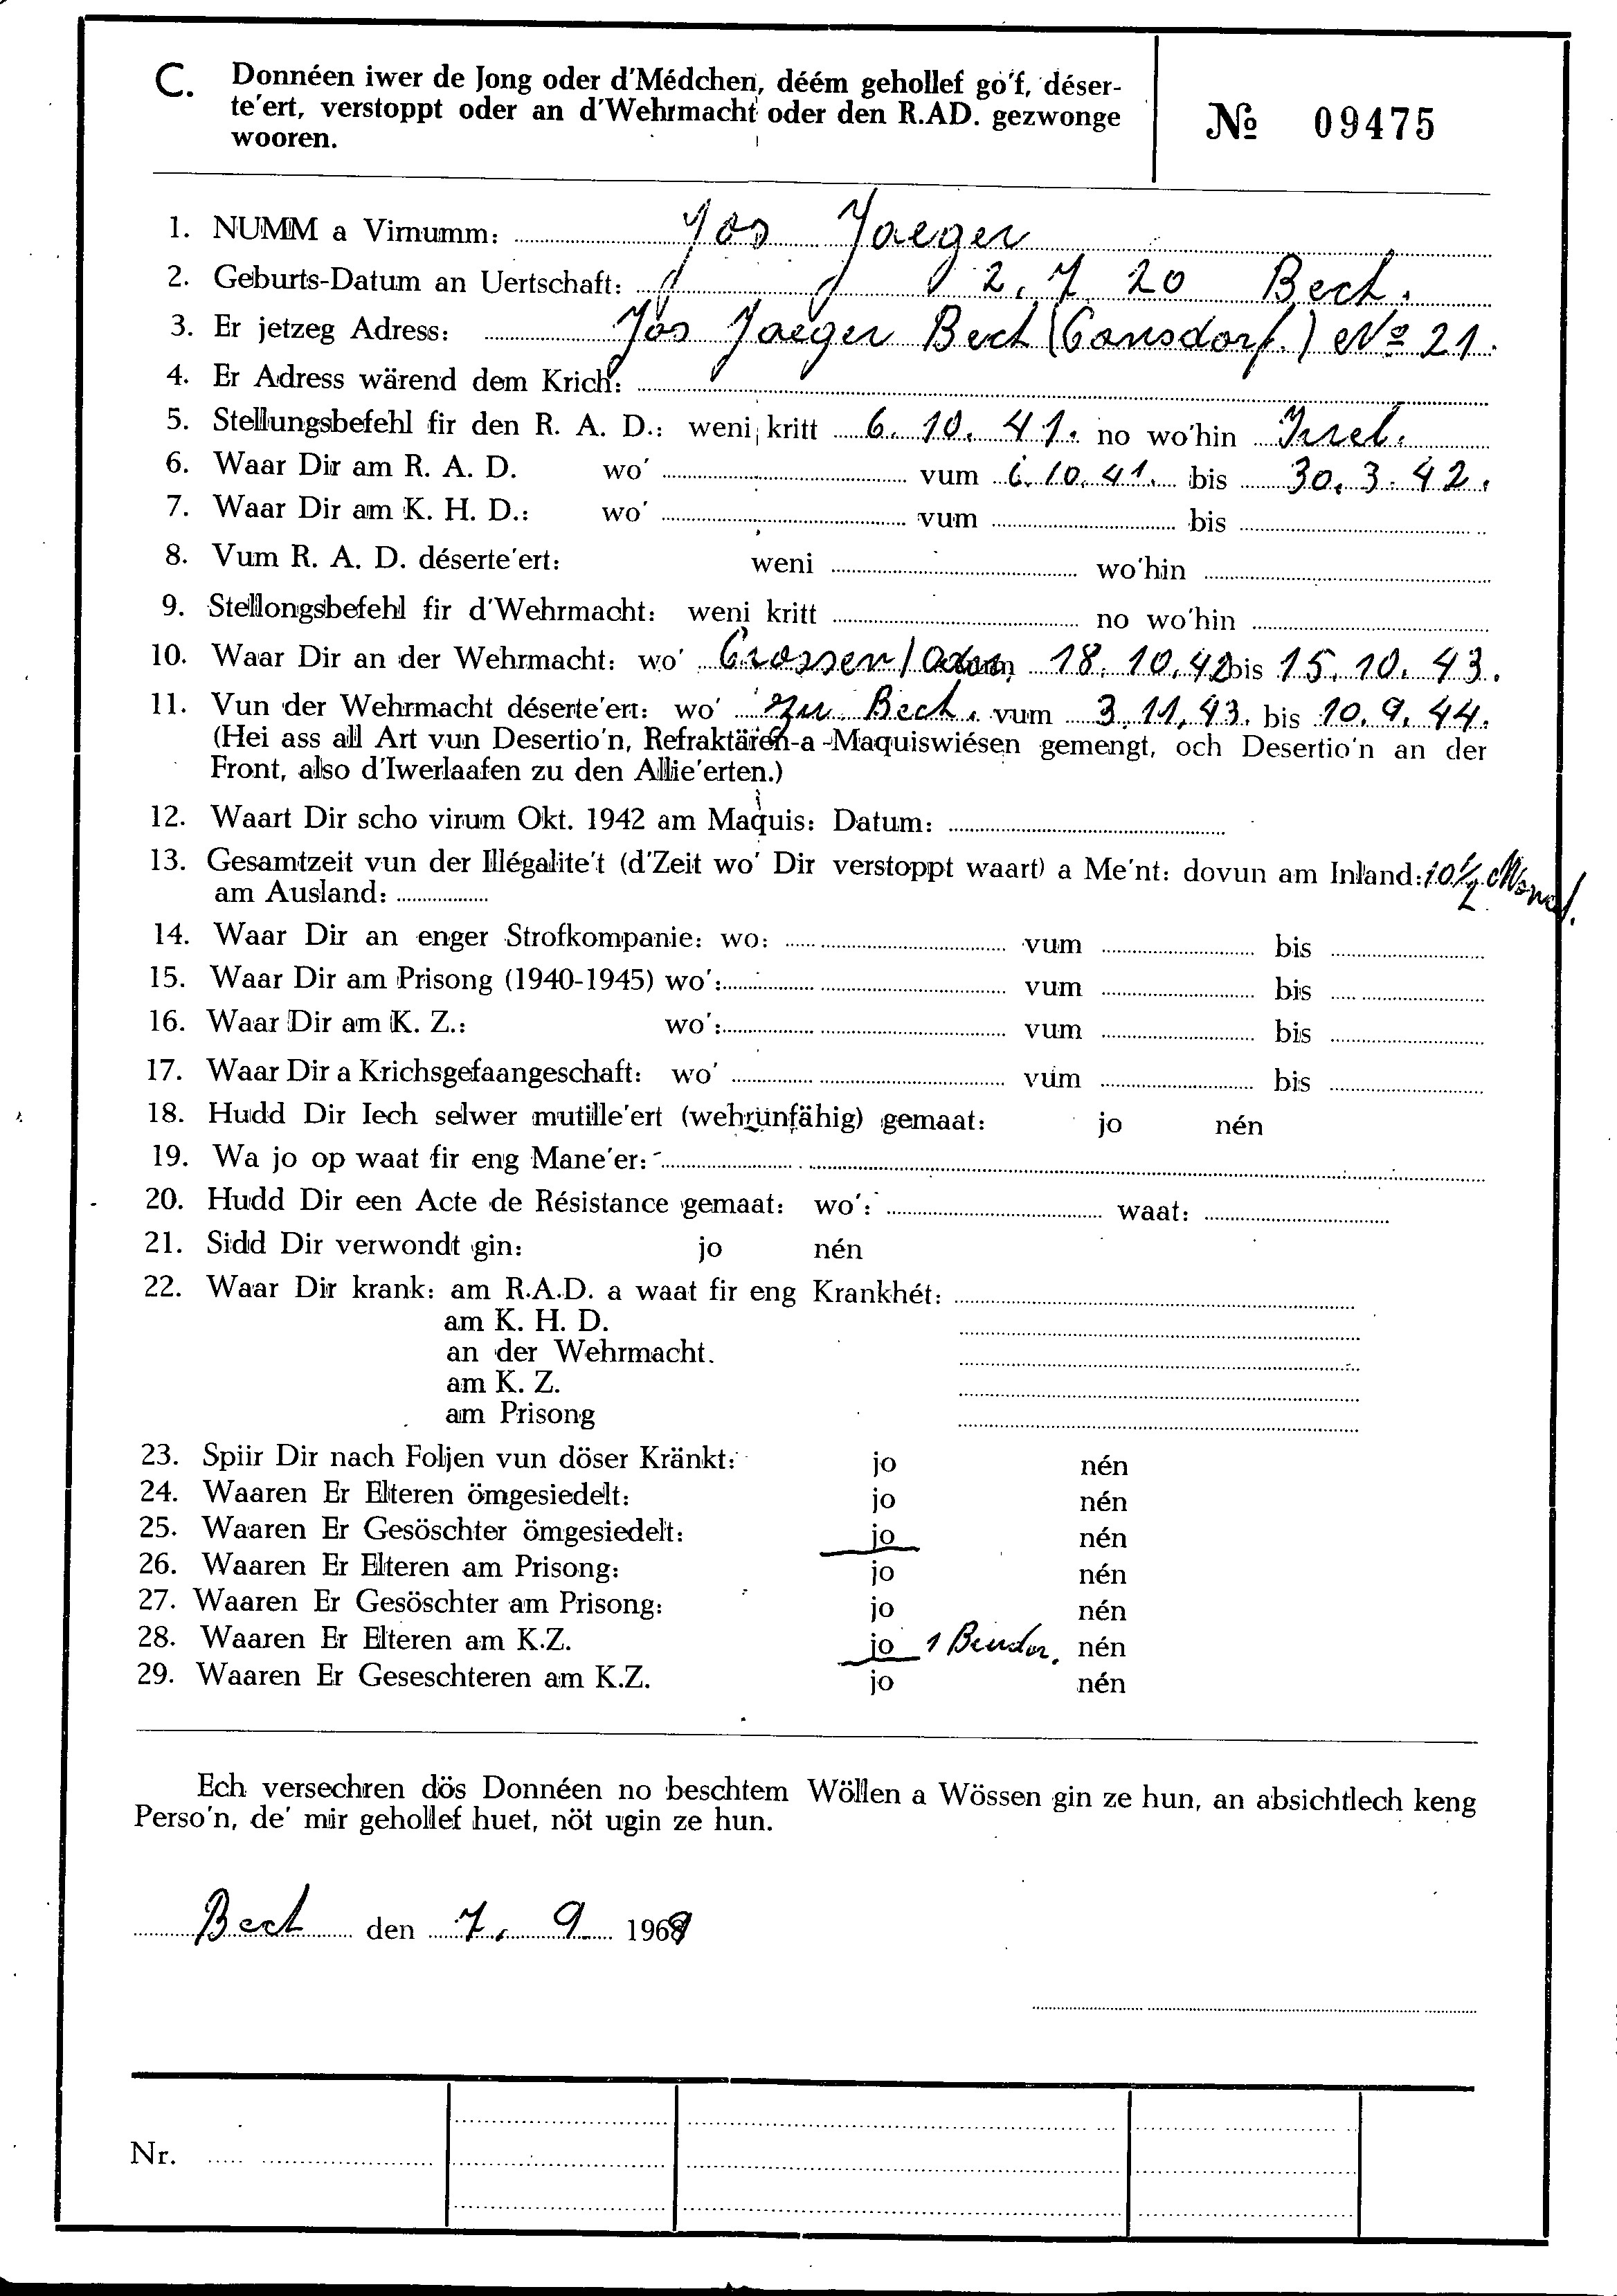 C. Donnéen iwer de Jong oder d'Médchen, déém gehollef go'f, déser-
te'ert, verstoppt oder an d'Wehrmacht oder den R.AD. gezwonge
wooren.
№ 09475
1. NUMM a Virnumm: Jos Jaeger
2. Geburts-Datum an Uertschaft: 2. 7 20 Bech.
3. Er jetzeg Adress: Jos Jaeger Bech (Consdorf.) № 21.
4. Er Adress wärend dem Krich:
5. Stellungsbefehl fir den R. A. D.: weni kritt 6. 10. 41. no wo'hin Irrel.
6. Waar Dir am R. A. D. wo' vum 6. 10. 41. bis 30. 3. 42.
7. Waar Dir am K. H. D.: wo' vum bis
8. Vum R. A. D. déserte'ert: weni wo'hin
9. Stellongsbefehl fir d'Wehrmacht: weni kritt no wo'hin
10. Waar Dir an der Wehrmacht: wo' Crossen / Oder vum 18. 10. 42 bis 15. 10. 43.
11. Vun der Wehrmacht déserte'ert: wo' zu Bech. vum 3. 11. 43. bis 10. 9. 44.
(Hei ass all Art vun Desertio'n, Refraktären-a -Maquiswiésen gemengt, och Desertio'n an der
Front, also d'Iwerlaafen zu den Allie'erten.)
12. Waart Dir scho virum Okt. 1942 am Maquis: Datum:
13. Gesamtzeit vun der Illégalite't (d'Zeit wo' Dir verstoppt waart) a Me'nt: dovun am Inland: 10 1/2 Monat.
am Ausland:
14. Waar Dir an enger Strofkompanie: wo: vum bis
15. Waar Dir am Prisong (1940-1945) wo': vum bis
16. Waar Dir am K. Z.: wo': vum bis
17. Waar Dir a Krichsgefaangeschaft: wo' vum bis
18. Hudd Dir Iech selwer mutille'ert (wehrunfähig) gemaat: jo nén
19. Wa jo op waat fir eng Mane'er:
20. Hudd Dir een Acte de Résistance gemaat: wo': waat:
21. Sidd Dir verwondt gin: jo nén
22. Waar Dir krank: am R.A.D. a waat fir eng Krankhét:
am K. H. D.
an der Wehrmacht.
am K. Z.
am Prisong
23. Spiir Dir nach Foljen vun döser Kränkt: jo nén
24. Waaren Er Elteren ömgesiedelt: jo nén
25. Waaren Er Gesöschter ömgesiedelt: jo nén
26. Waaren Er Elteren am Prisong: jo nén
27. Waaren Er Gesöschter am Prisong: jo nén
28. Waaren Er Elteren am K.Z. jo 1 Bruder. nén
29. Waaren Er Geseschteren am K.Z. jo nén
Ech versechren dös Donnéen no beschtem Wöllen a Wössen gin ze hun, an absichtlech keng
Perso'n, de' mir gehollef huet, nöt ugin ze hun.
Bech den 7. 9. 1969
Nr.